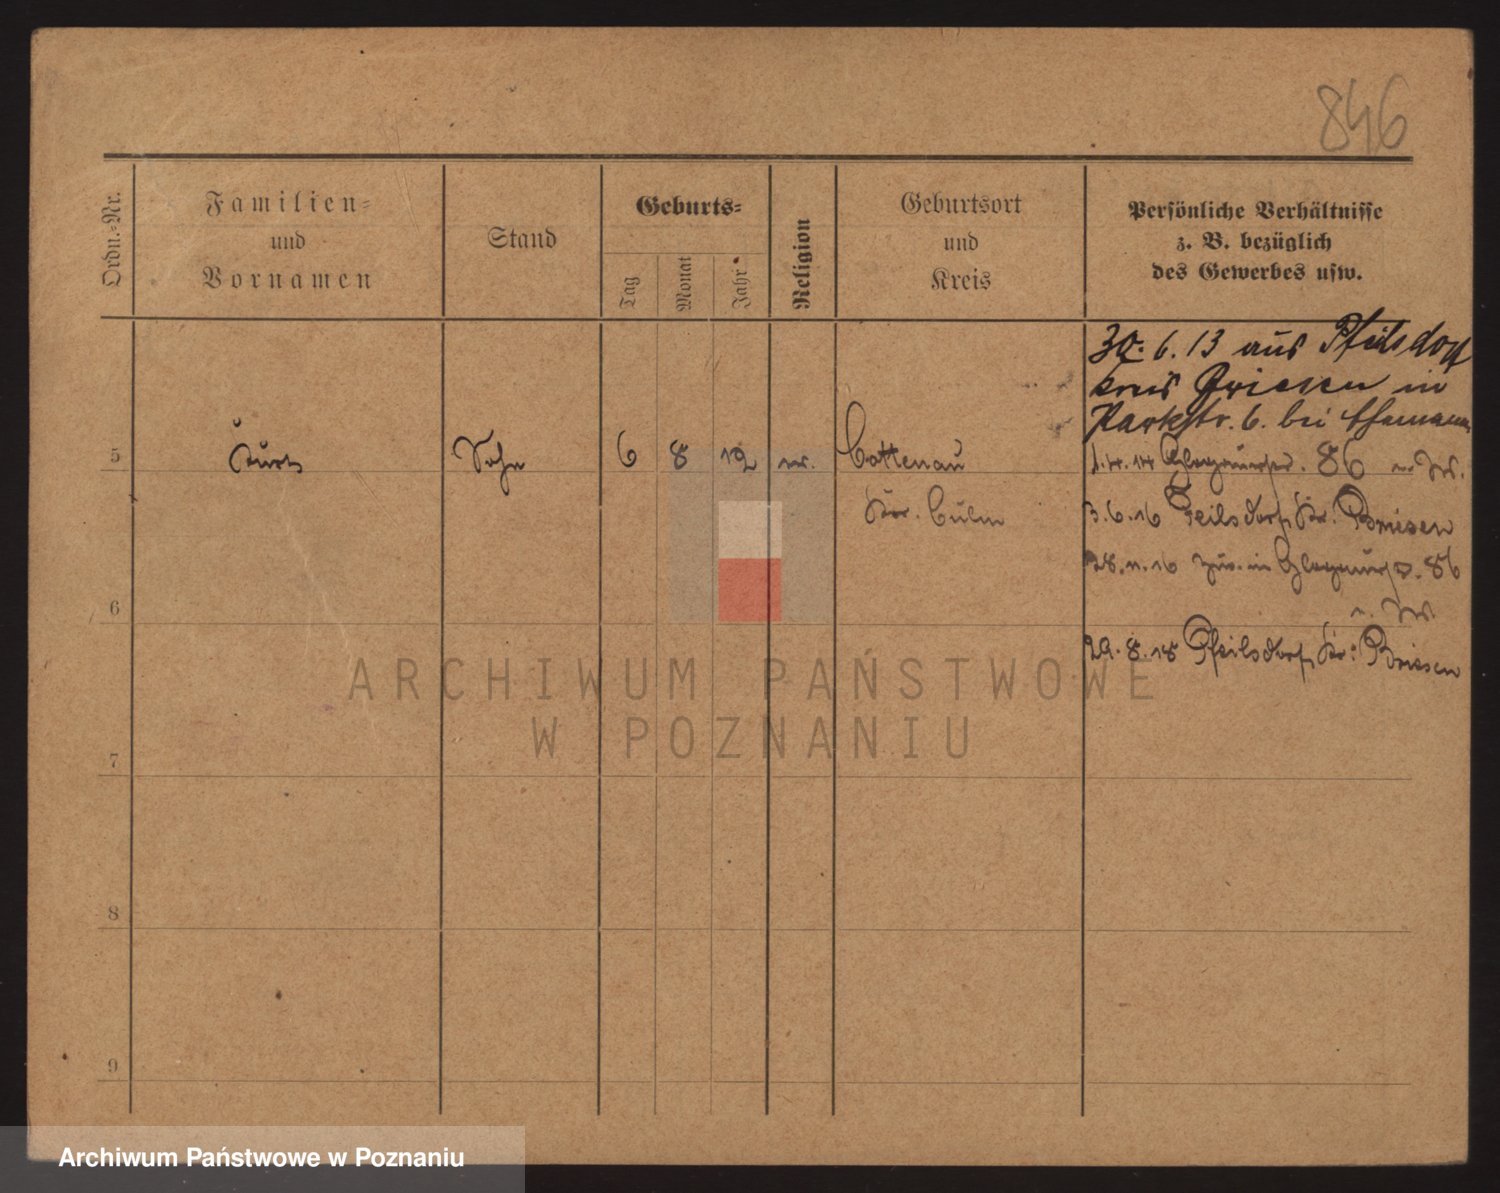 846
Ordn.-Nr.
Familien-
und
Vornamen
Stand
Geburts-
Tag
Monat
Jahr
Religion
Geburtsort
und
Kreis
Persönliche Verhältnisse
z. B. bezüglich
des Gewerbes usw.
30. 6. 13 aus Pfeilsdorf
Kreis Briesen in
Parkstr. 6. bei
5
Kurt
Sohn
6
8
12
ev.
Cottenau
Kr. Culm
86
3.6.16 Pfeilsdorf, Kr. Briesen
28.11.16 zur. in 86
29.8.18 Pfeilsdorf, Kr. Briesen
6
7
8
9
ARCHIWUM PAŃSTWOWE
W POZNANIU
Archiwum Państwowe w Poznaniu